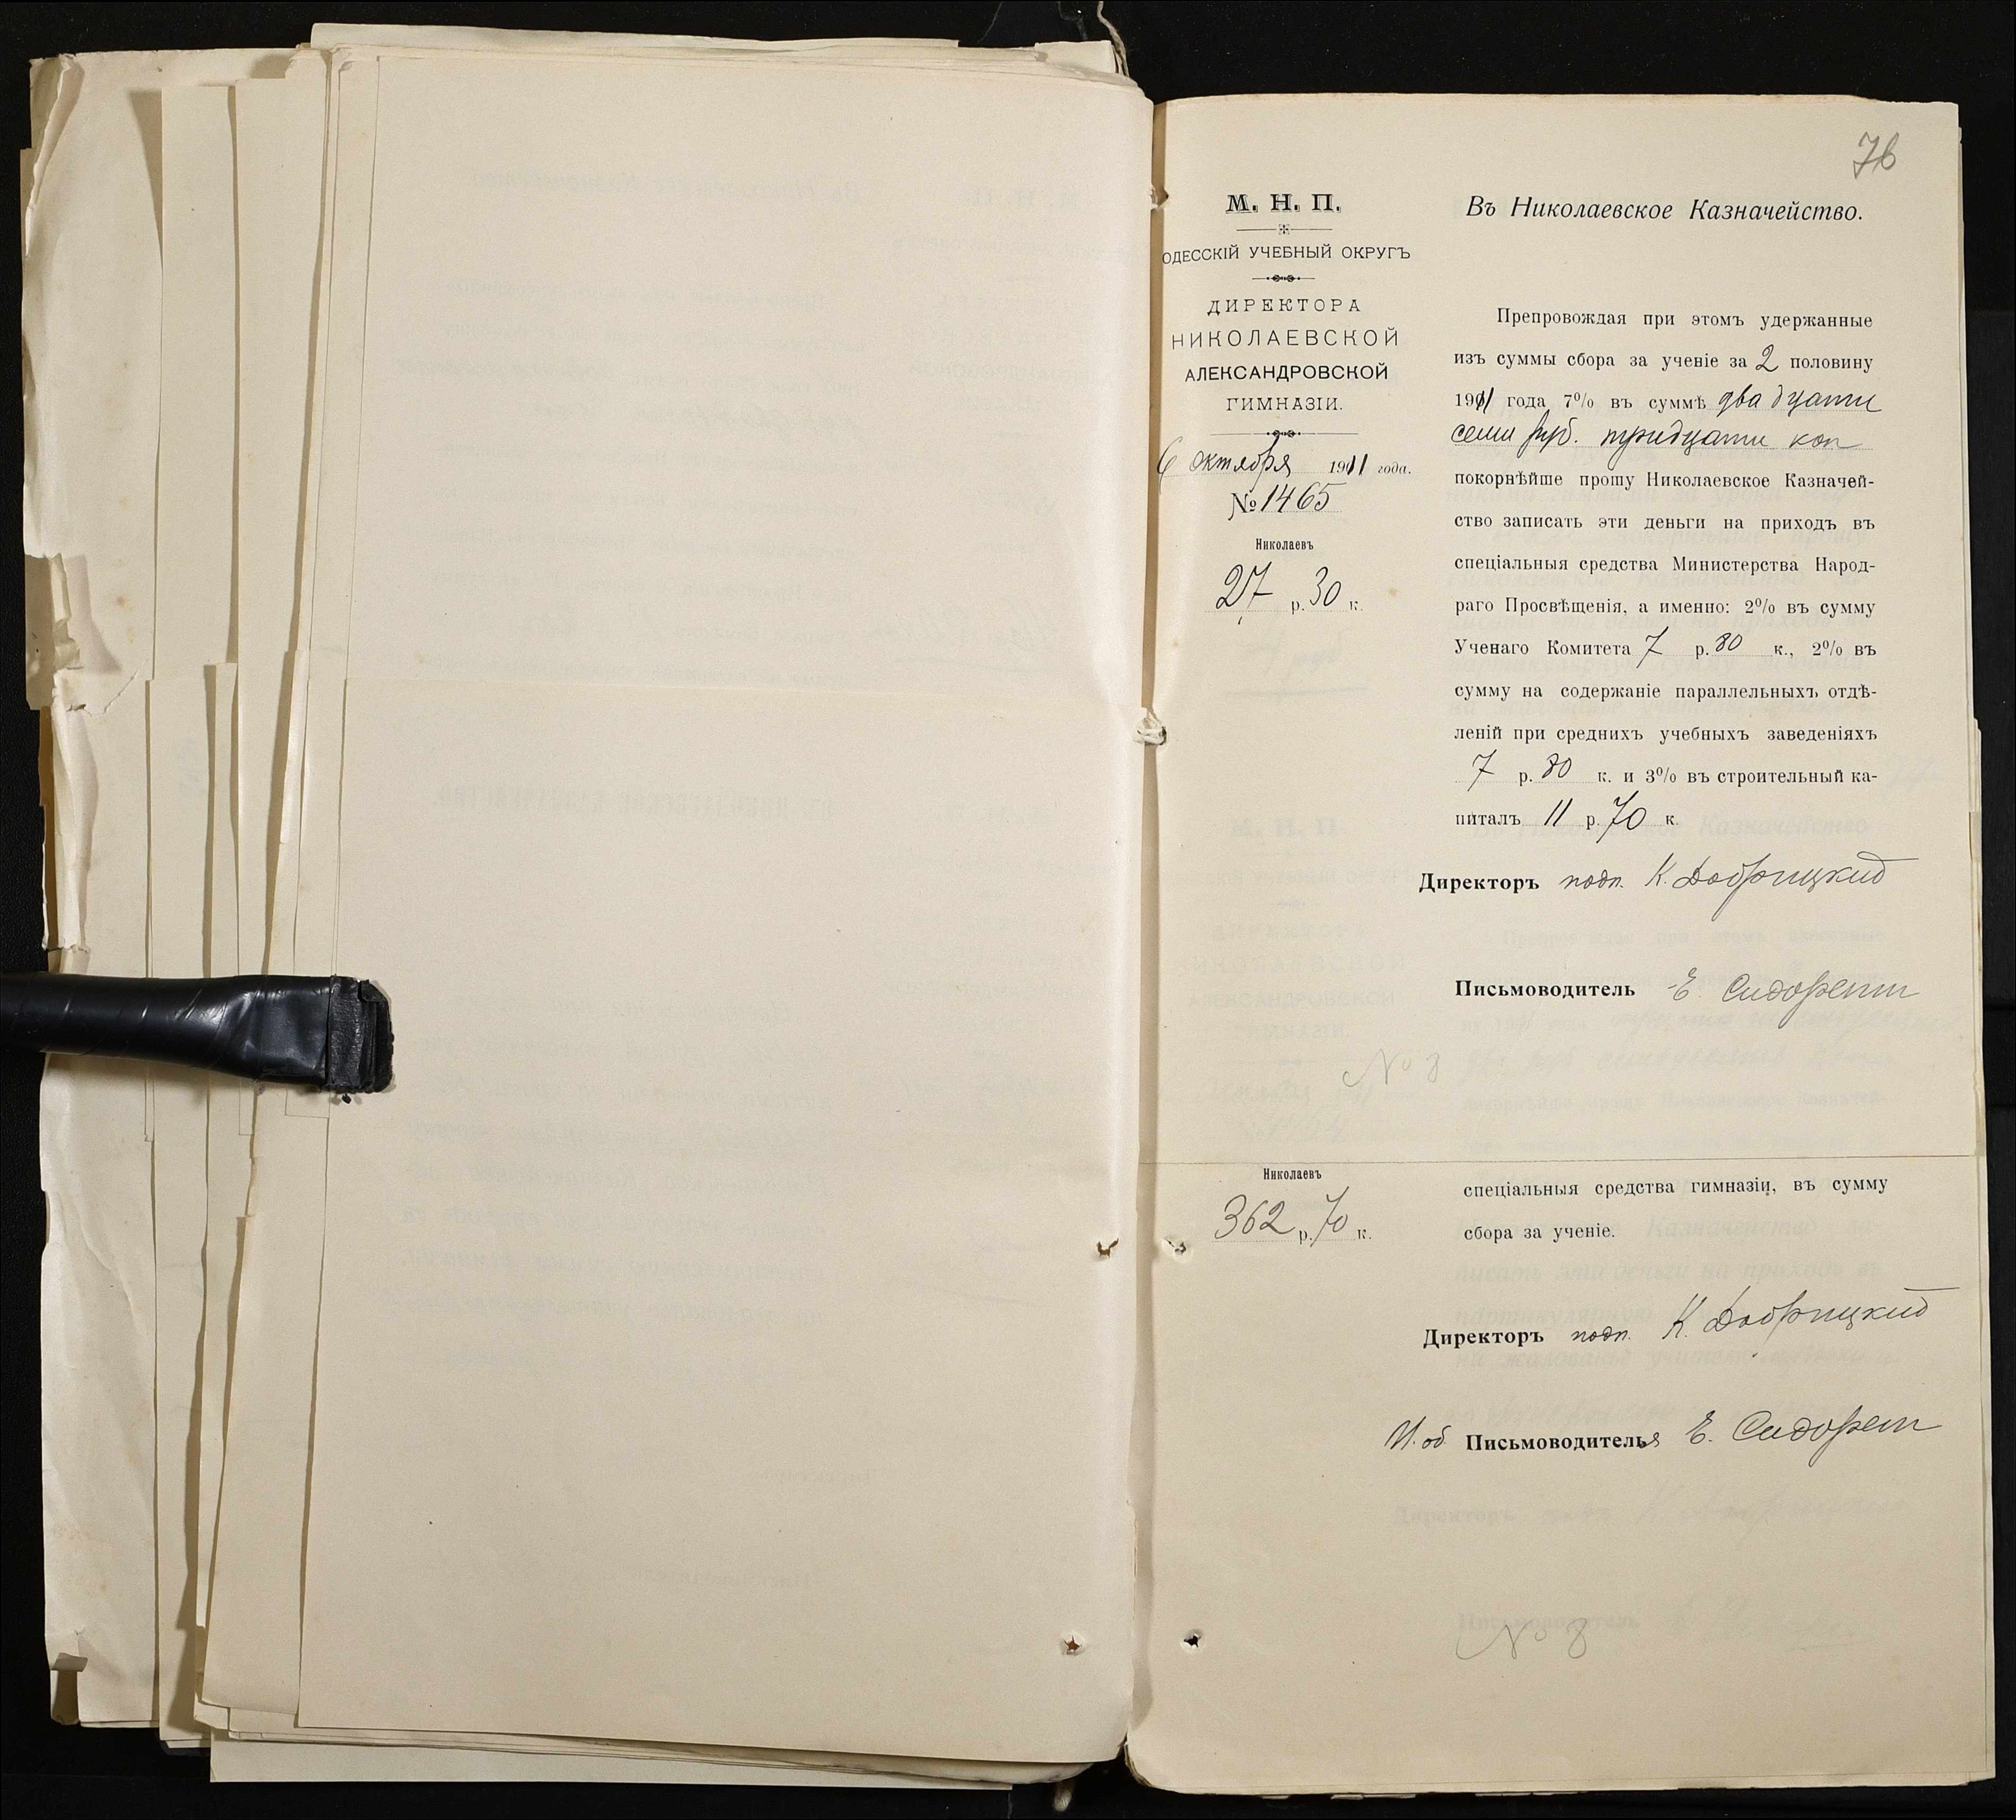 76
М. Н. П.
ОДЕССКІЙ УЧЕБНЫЙ ОКРУГЪ
ДИРЕКТОРА
НИКОЛАЕВСКОЙ
АЛЕКСАНДРОВСКОЙ
ГИМНАЗІИ.
6 октября 1911 года.
№ 1465
Николаевъ
27 р. 30 к.
Въ Николаевское Казначейство.
Препровождая при этомъ удержанные
изъ суммы сбора за ученіе за 2 половину
1911 года 7% въ суммѣ двадцати
семи руб. тридцати коп
покорнѣйше прошу Николаевское Казначей-
ство записать эти деньги на приходъ въ
спеціальныя средства Министерства Народ-
раго Просвѣщенія, а именно: 2% въ сумму
Ученаго Комитета 7 р. 80 к., 2% въ
сумму на содержаніе параллельныхъ отдѣ-
леній при среднихъ учебныхъ заведеніяхъ
7 р. 80 к. и 3% въ строительный ка-
питалъ 11 р. 70 к.
Директоръ подп. К. Добрицкій
Письмоводитель Е. Сидорент
№ 8
Николаевъ
362 р. 70 к.
спеціальныя средства гимназіи, въ сумму
сбора за ученіе.
Директоръ подп. К. Добрицкій
И. об. Письмоводителя Е. Сидорент
№ 8